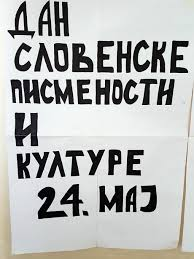 ДАН
СЛОВЕНСКЕ
ПИСМЕНОСТИ
И
КУЛТУРЕ
24. МАЈ